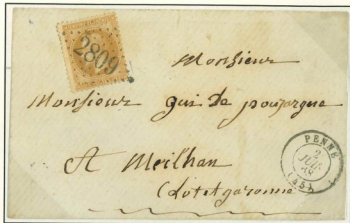 2809
Monsieur
Monsieur gui de poujargue
A Meilhan
(Lot et garonne
PENNE
2
(45)